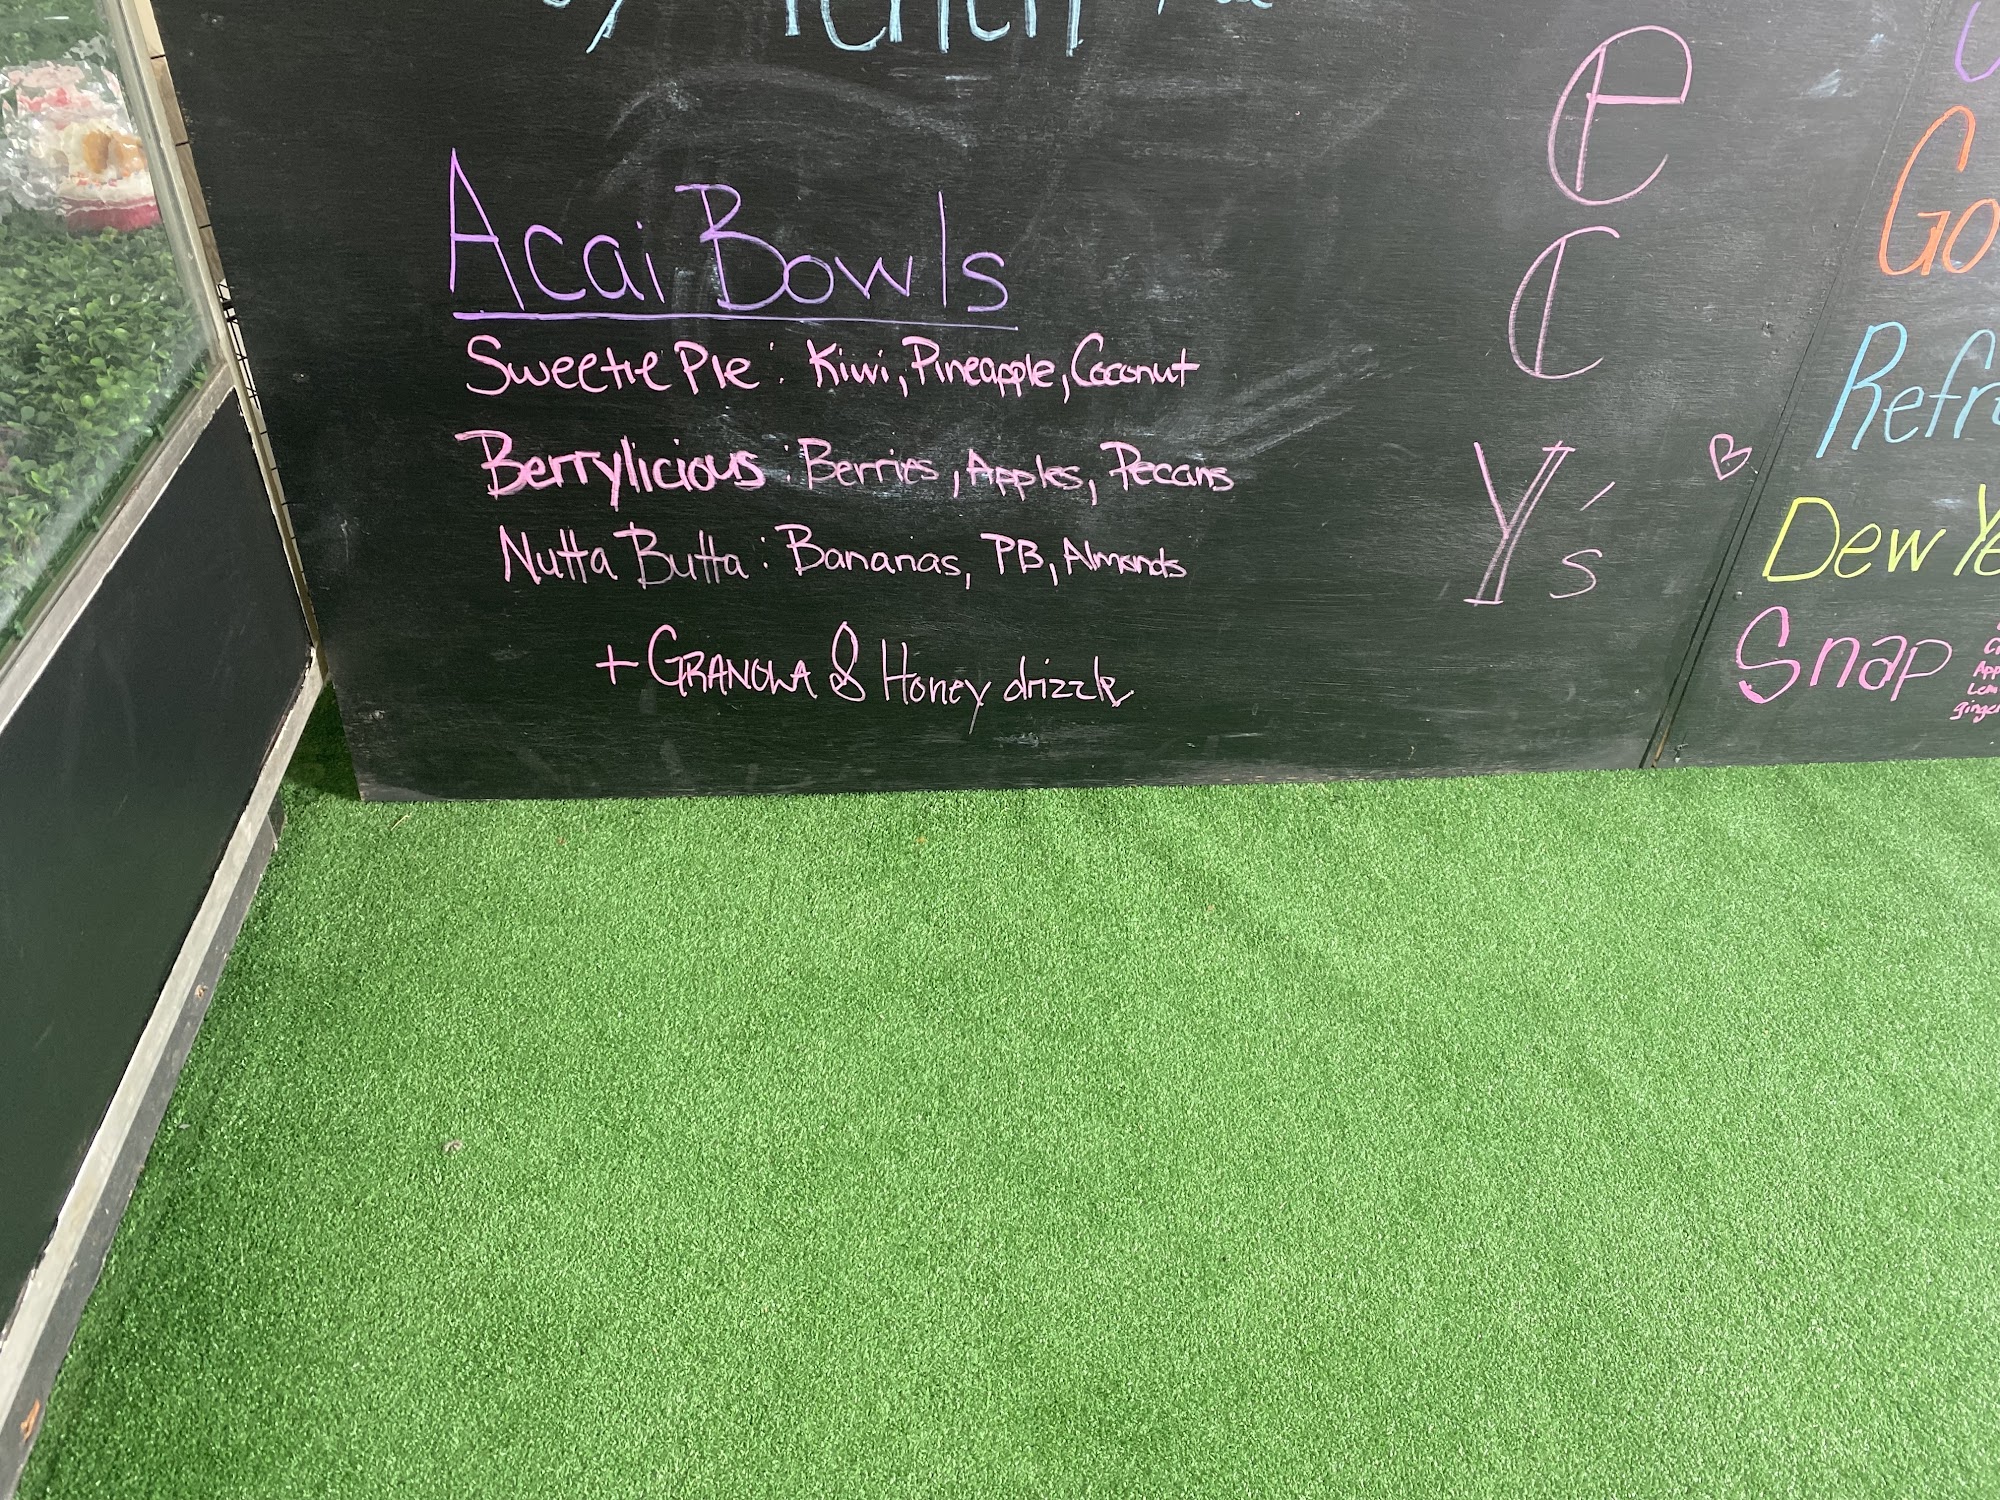 Acai Bowls
Sweetie Pie: Kiwi, Pineapple, Coconut
Berrylicious: Berries, Apples, Pecans
Nutta Butta: Bananas, PB, Almonds
+ GRANOLA & Honey drizzle
e
C
Y's
Go
Refre
Dew Ye
Snap
App
Lem
ginger